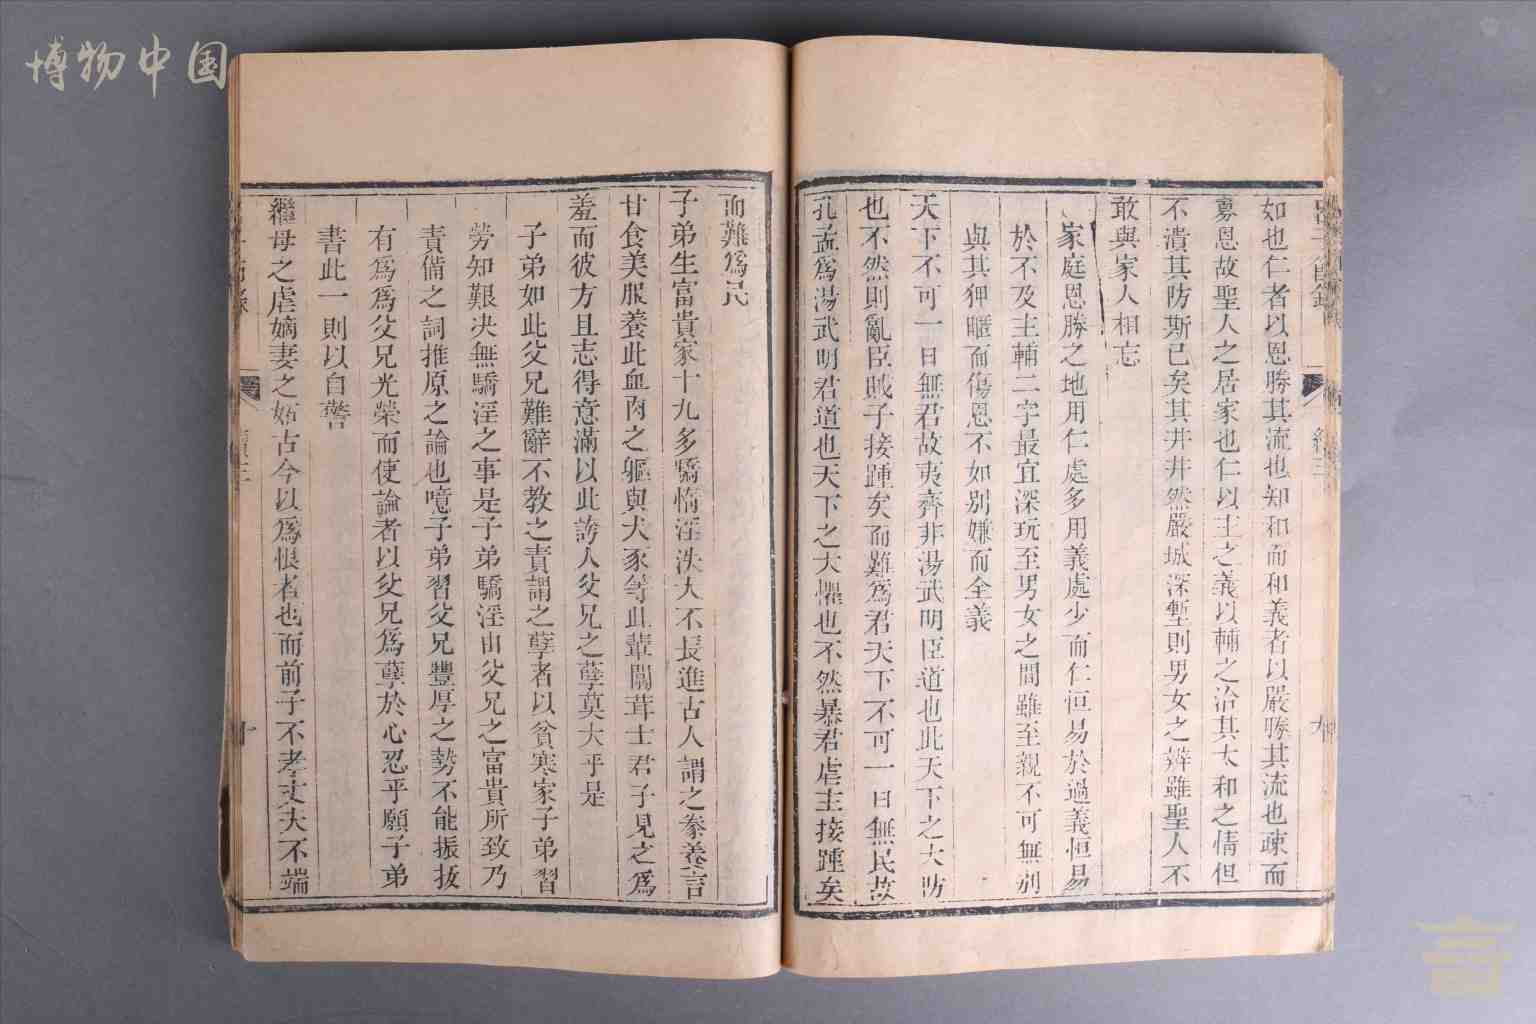 博物中国
如也仁者以恩勝其流也知和而和義者以嚴勝其流也疎而
寡恩故聖人之居家也仁以主之義以輔之洽其太和之情但
不潰其防斯已矣其井井然嚴城深塹則男女之辨雖聖人不
敢與家人相忘
家庭恩勝之地用仁處多用義處少而仁恒易於過義恒易
於不及主輔二字最宜深玩至男女之間雖至親不可無別
與其狎暱而傷恩不如別嫌而全義
天下不可一日無君故夷齊非湯武明臣道也此天下之大防
也不然則亂臣賊子接踵矣而難爲君天下不可一日無民故
孔孟爲湯武明君道也天下之大懼也不然暴君虐主接踵矣
而難爲民
子弟生富貴家十九多驕惰淫泆大不長進古人謂之豢養言
甘食美服養此血肉之軀與犬豕等此輩闒茸士君子見之爲
羞而彼方且志得意滿以此誇人父兄之孽莫大乎是
子弟如此父兄難辭不教之責謂之孽者以貧寒家子弟習
勞知艱决無驕淫之事是子弟驕淫由父兄之富貴所致乃
責備之詞推原之論也噫子弟習父兄豐厚之勢不能振拔
有爲爲父兄光榮而使論者以父兄爲孽於心忍乎願子弟
書此一則以自警
繼母之虐嫡妻之妬古今以爲恨者也而前子不孝丈夫不端